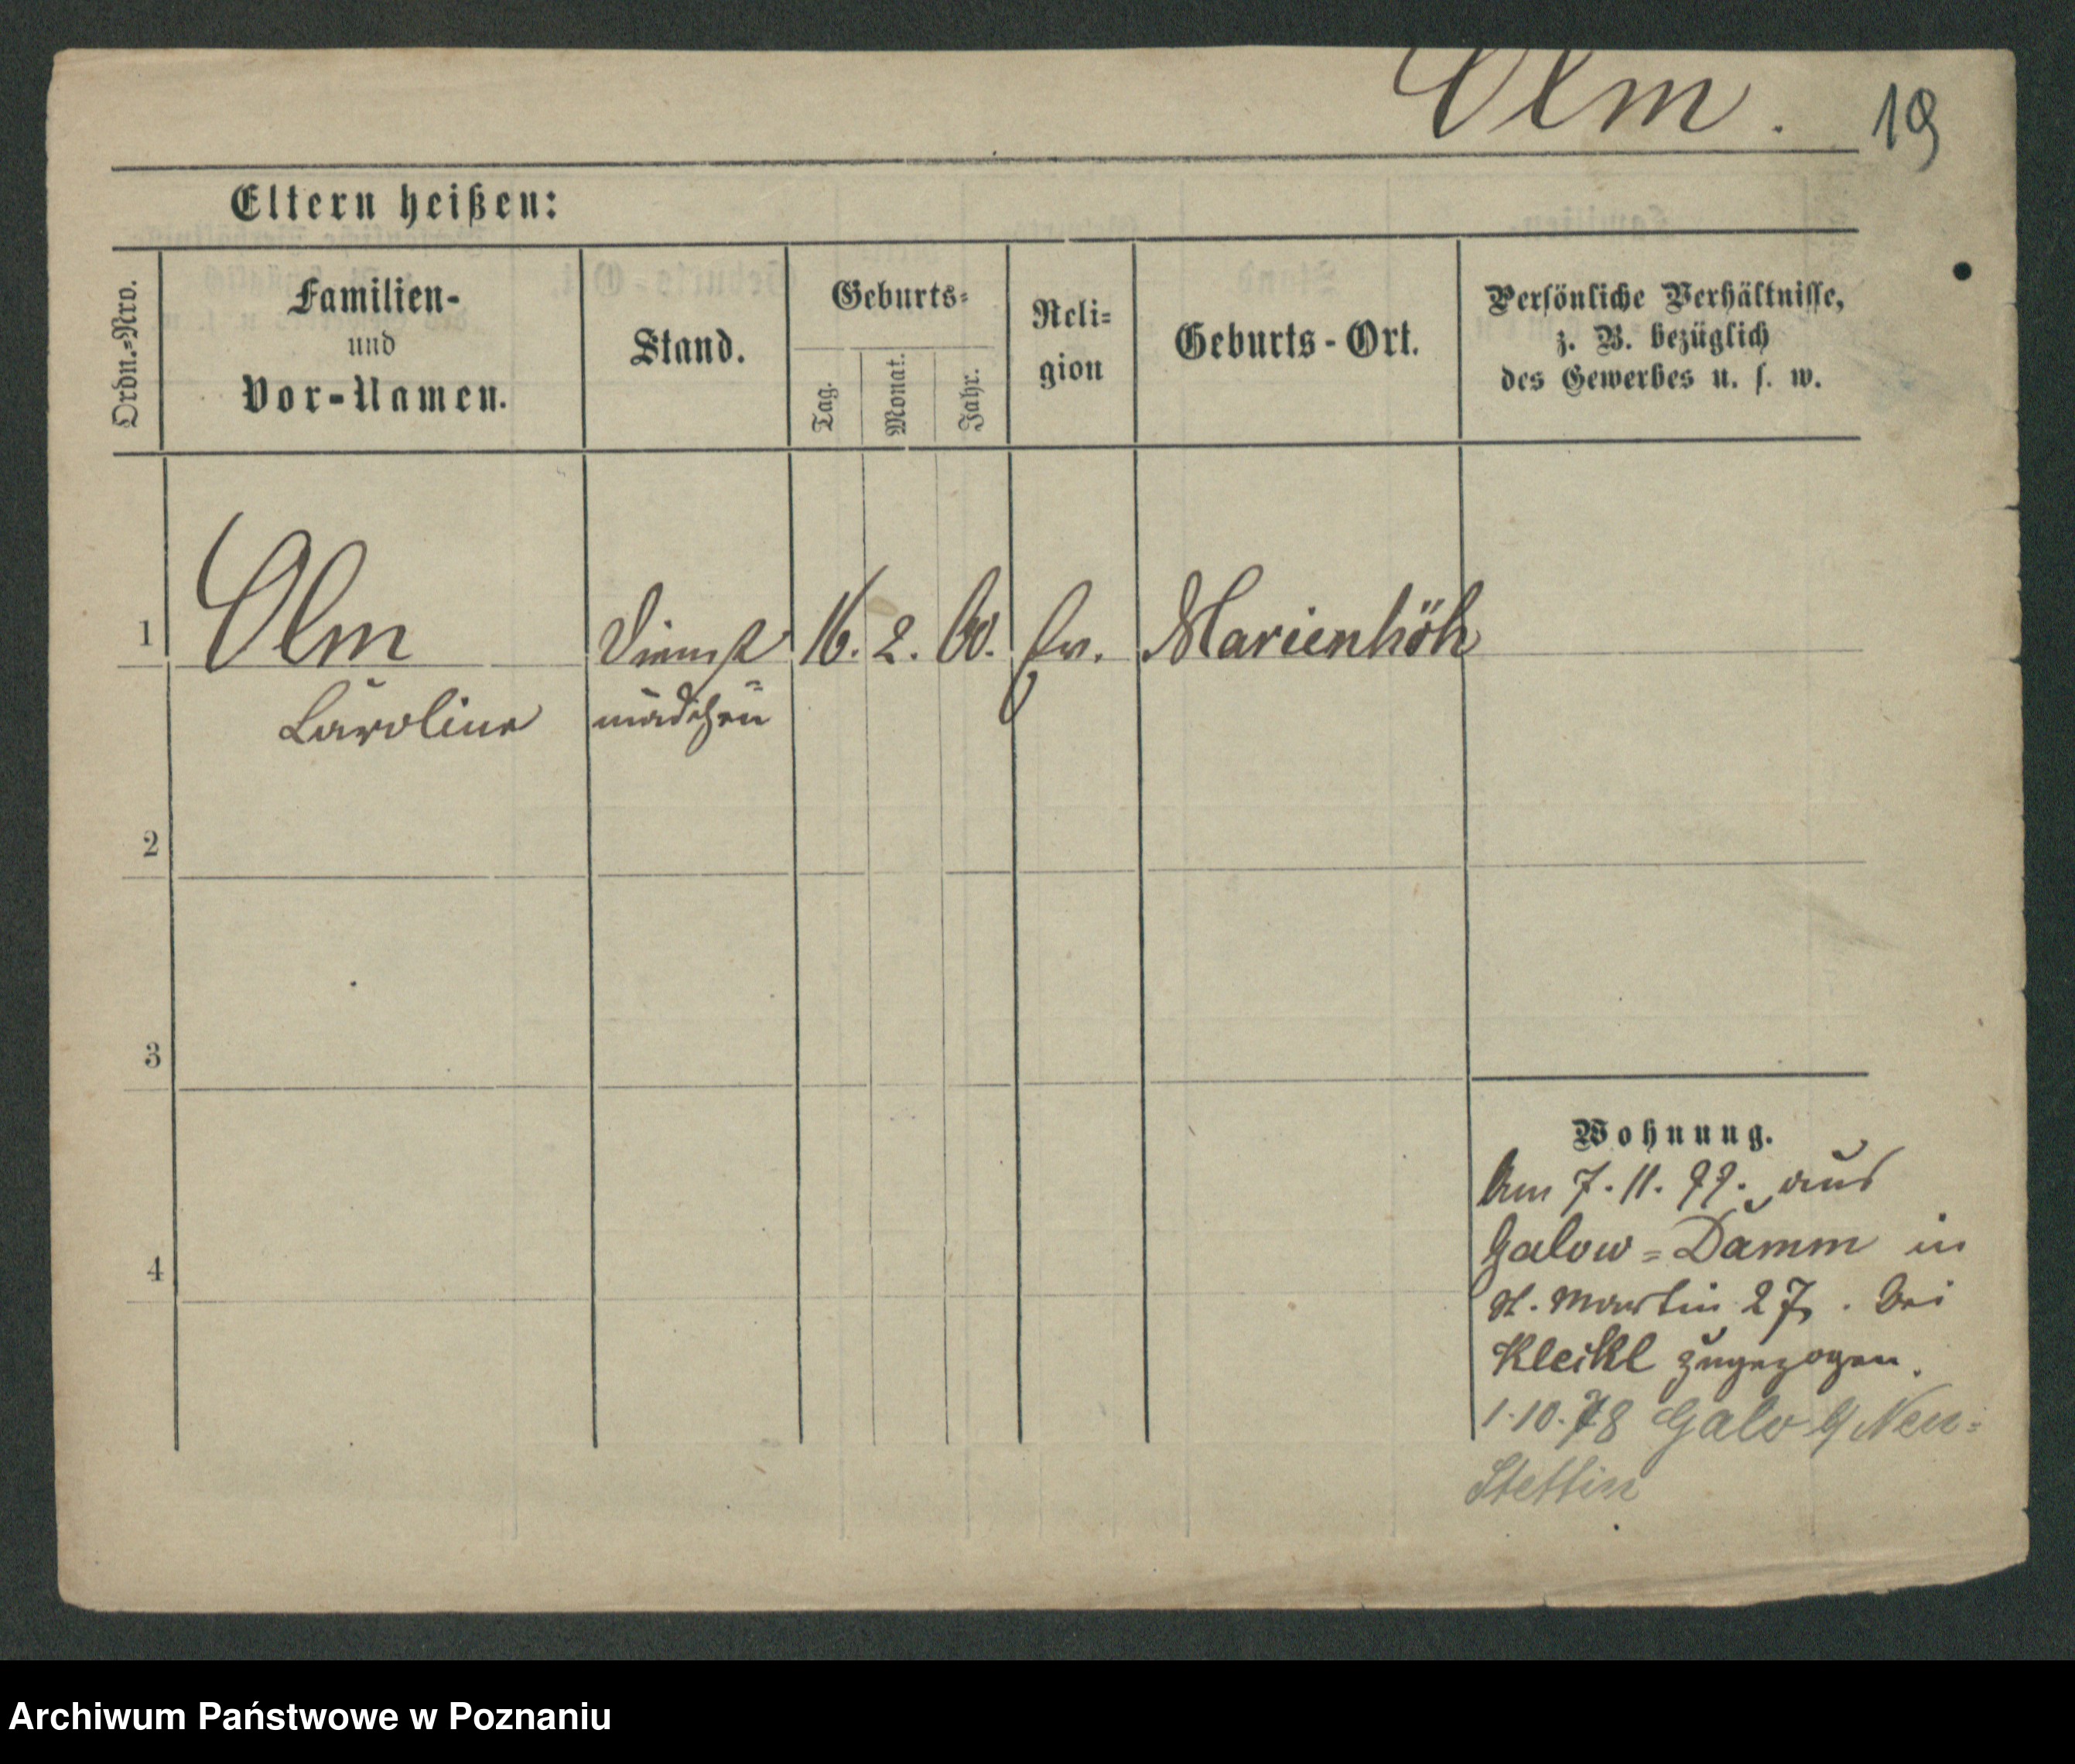 Olm. 19
Eltern heißen:
Ordn.=Nro.
Familien-
und
Vor-Namen.
Stand.
Geburts=
Tag.
Monat.
Jahr.
Reli=
gion
Geburts-Ort.
Persönliche Verhältnisse,
z. B. bezüglich
des Gewerbes u. s. w.
1 Olm Dienst 16. 2. 60. ev. Marienhöh
Caroline mädchen
2
3
4
Wohnung.
Am 7. 11. 77. aus
Galow=Damm in
St. Martin 27. bei
Kleikl zugezogen.
1.10.78 Galo Neu=
Stettin
Archiwum Państwowe w Poznaniu